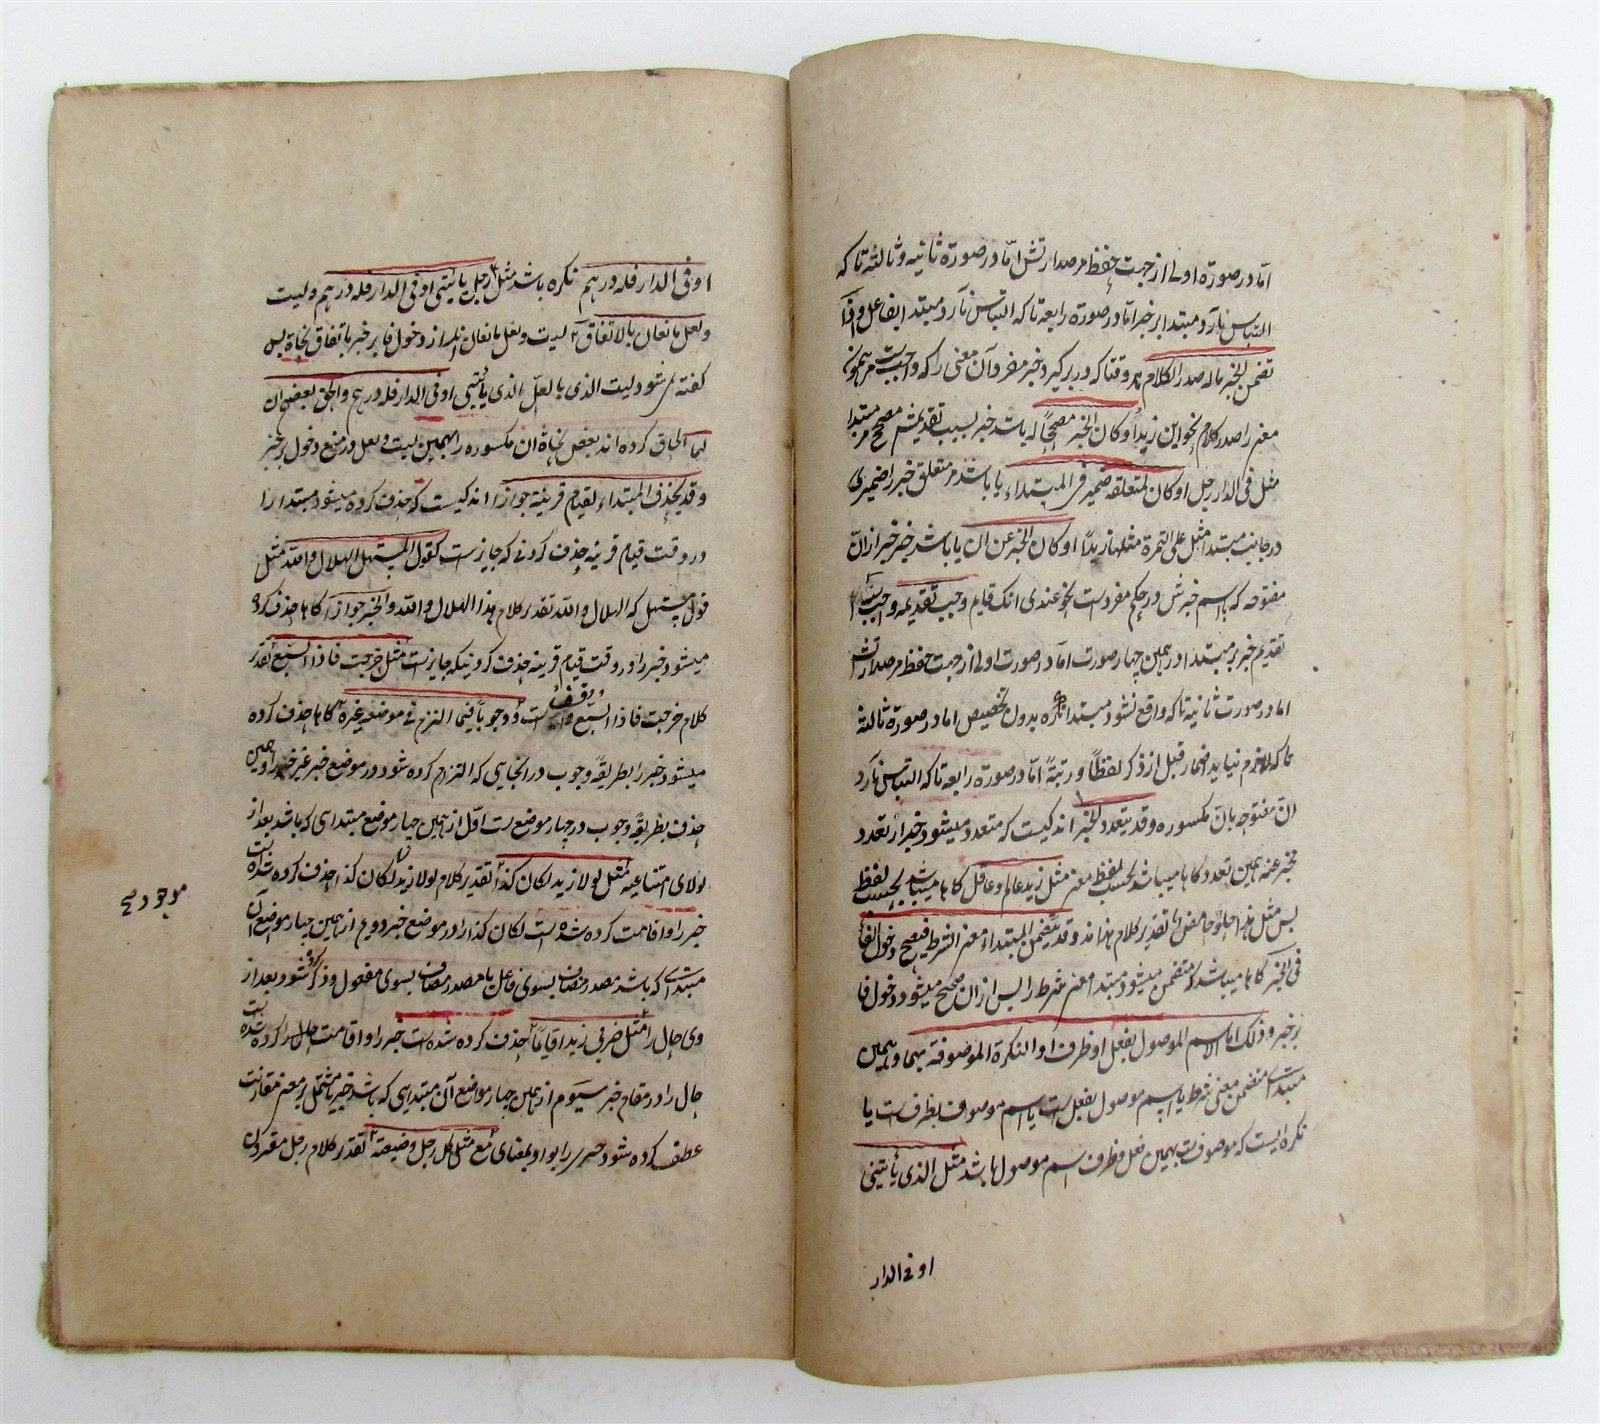 اما در صورة اولی از جهت حفظ مر صدارتش اما در صورة ثانیه و ثالثه تا که
التباس نآرد مبتدا بر خبر اما در صورة رابعه تا که التباس نآرد مبتدا بفاعل و اذا
تضمن الخبر ماله صدر الکلام در برگیرد خبر مفرد آن معنی را که واجب است مر همون
معنی را صدر کلام نحو این زید او کان الخبر مصححا له یا باشد خبر بسبب تقدیمش مصحح مر مبتدا
مثل فی الدار رجل او کان لمتعلقه ضمیر فی المبتداء یا باشد مر متعلق خبر را ضمیری
در جانب مبتدا مثل علی التمرة مثلها زبدا او کان الخبر عن ان یا باشد خبر خبر از ان
مفتوحه که با اسم خبرش در حکم مفرد است نحو عندی انک قایم وجب تقدیمه واجب است
تقدیم خبر بر مبتدا در همین چهار صورت اما در صورت اولی از جهت حفظ مر صدارتش
اما در صورت ثانیه تا که واقع نشود مبتدا نکره بدون تخصیص اما در صورة ثالثه
تا که لازم نیاید اضمار قبل از ذکر لفظا و رتبة اما در صورة رابعه تا که التباس نآرد
ان مفتوحه بان مکسوره و قد یتعدد الخبر اندکیست که متعدد میشود خبر از تعدد
مخبر عنه همین تعدد گاها میباشد بحسب لفظ معنی مثل زید عالم و عاقل گاها میباشد بحسب لفظ
بس مثل هذا حلو حامض تقدیر کلام هذا مز و قد یتضمن المبتداء معنی الشرط فیصح دخول الفا
فی الخبر گاها میباشد که متضمن میشود مبتدا معنی شرط را پس از ان صحیح میشود دخول فا
بر خبر و ذلک اما الاسم الموصول بفعل او ظرف او النکرة الموصوفة بهما و همین
مبتدا متضمن معنی شرط یا اسم موصول بفعل است یا اسم موصوف بظرف است یا
نکره ایست که موصوف بهمین فعل و ظرف اسم موصول باشد مثل الذی یأتینی
او فی الدار
او فی الدار فله درهم نکره باشد مثل رجل یأتینی او فی الدار فله درهم و لیت
و لعل مانعان بالاتفاق لیت و لعل مانعان اند از دخول فا بر خبر باتفاق نحاة پس
گفته نمی شود لیت الذی یا لعل الذی یأتینی او فی الدار فله درهم و الحق بعضهم ان
بهما الحاق کرده اند بعض نحاة ان مکسوره را بهمین لیت و لعل در منع دخول بر خبر
و قد یحذف المبتداء لقیام قرینة جوازا اندکیست که حذف کرده میشود مبتدا را
در وقت قیام قرینه حذف کردنی که جایز است کقول المستهل الهلال والله مثل
قول مستهل که الهلال والله تقدیر کلام هذا الهلال والله و الخبر جوازا گاها حذف کرده
میشود خبر را در وقت قیام قرینه حذف کردنیکه جایز است مثل خرجت فاذا السبع تقدیر
کلام خرجت فاذا السبع واقف است و وجوبا فیما التزم فی موضعه غیره گاها حذف کرده
میشود خبر را بطریقه وجوب در انجایی که التزام کرده شود در موضع خبر غیر خبر را و همین
حذف بطریقه وجوب در چهار موضع است اول از همین چهار موضع مبتدایی که باشد بعد از
لولای امتناعیه مثل لولا زید لکان کذا تقدیر کلام لولا زید لکان کذا حذف کرده شده است
خبر را و اقامت کرده شده است لکان کذا را در موضع خبر دویم از همین چهار موضع آن
مبتدای که باشد مصدر مضاف بسوی فاعل یا مصدر مضاف بسوی مفعول و ذکر کرده شود بعد از
وی حال را مثل ضربی زیدا قایما حذف کرده شده است خبر را و اقامت حال را کرده شده است
حال را در مقام خبر سیوم از همین چهار مواضع آن مبتدایی که باشد خبر مشتمل بر معنی مقارنت
عطف کرده شود چیزی را بواو بمعنای مع مثل کل رجل و ضیعته تقدیر کلام رجل مقرون
موجود صح